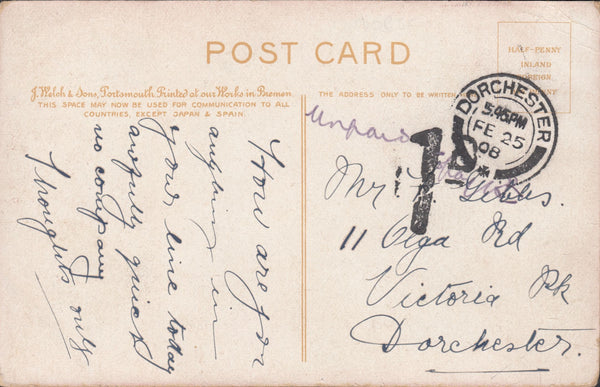 POST CARD
HALF-PENNY
INLAND
FOREIGN
J. Welch & Sons, Portsmouth Printed at our Works in Bremen
THIS SPACE MAY NOW BE USED FOR COMMUNICATION TO ALL
COUNTRIES, EXCEPT JAPAN & SPAIN.
THE ADDRESS ONLY TO BE WRITTEN
DORCHESTER
5.45PM
FE 25
08
Unpaid
1D
How are you
anything in
your line today
awfully quiet
no company
Thoughts only
Mr J. Gibbs.
11 Olga Rd
Victoria Pk
Dorchester.